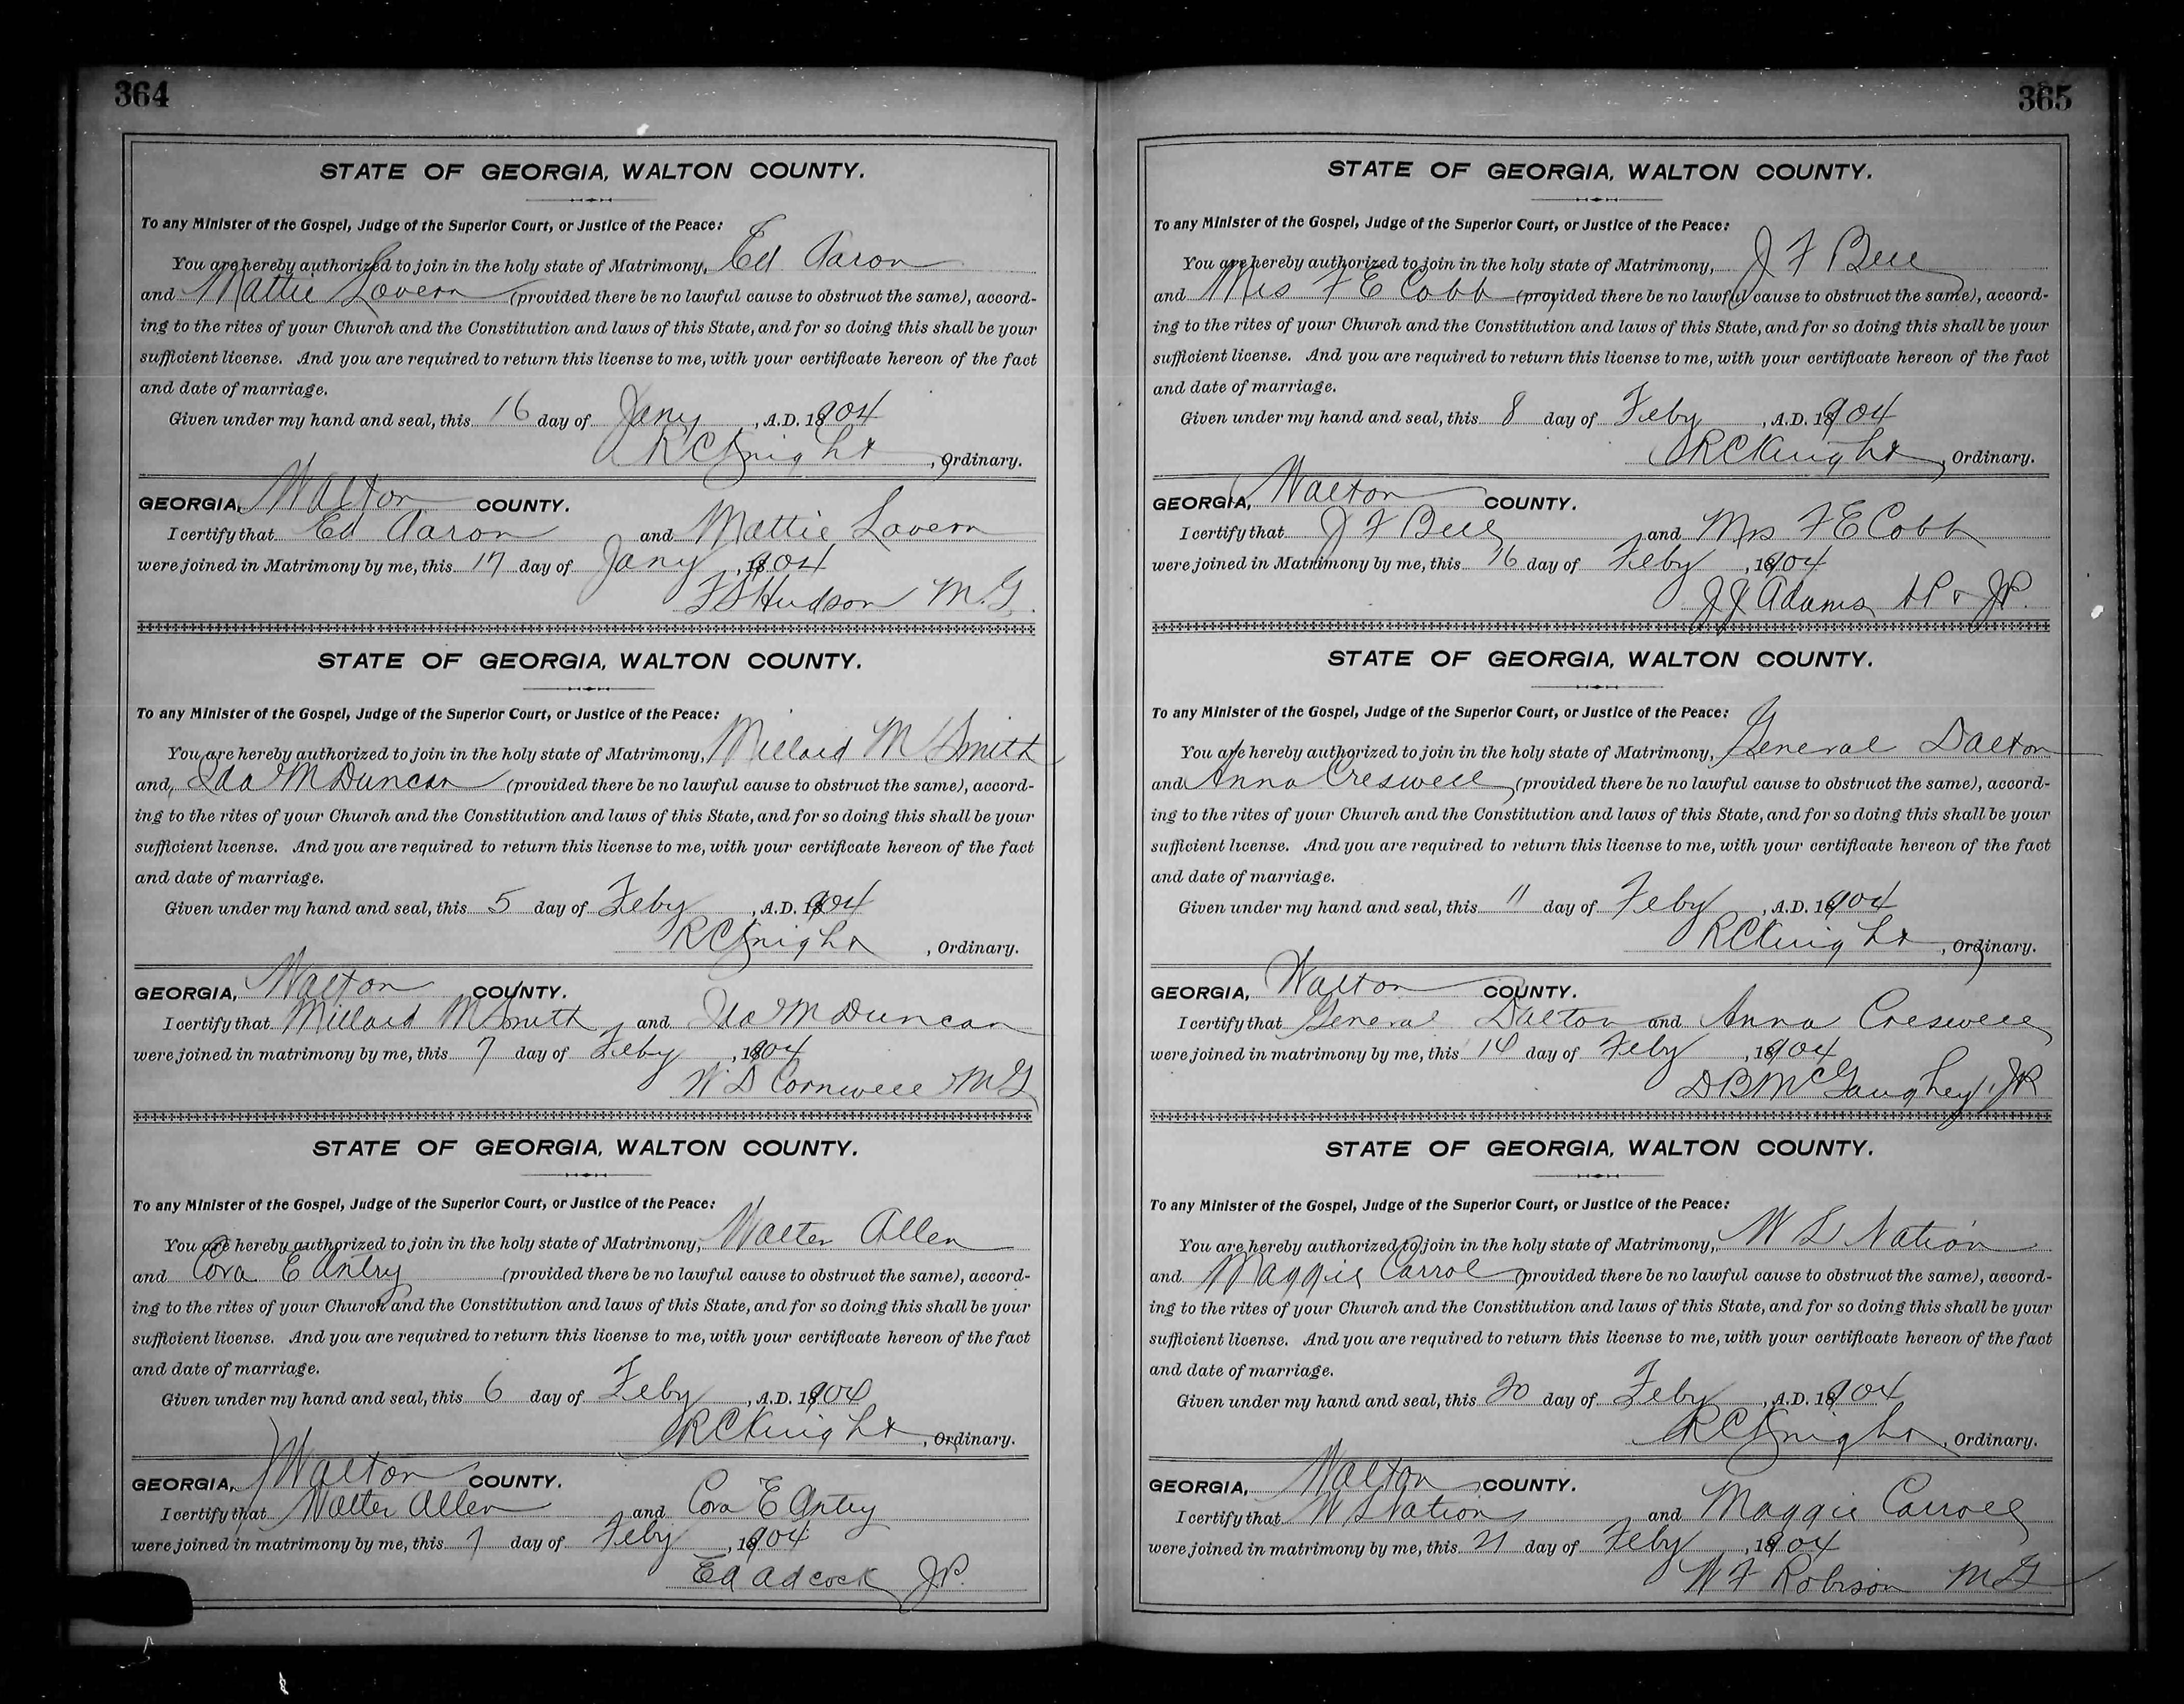 364
STATE OF GEORGIA, WALTON COUNTY.
To any Minister of the Gospel, Judge of the Superior Court, or Justice of the Peace:
You are hereby authorized to join in the holy state of Matrimony, Ed Aaron
and Mattie Lovern (provided there be no lawful cause to obstruct the same), accord-
ing to the rites of your Church and the Constitution and laws of this State, and for so doing this shall be your
sufficient license. And you are required to return this license to me, with your certificate hereon of the fact
and date of marriage.
Given under my hand and seal, this 16 day of Jany, A.D. 1904
R C Knight, Ordinary.
GEORGIA, Walton COUNTY.
I certify that Ed Aaron and Mattie Lovern
were joined in Matrimony by me, this 17 day of Jany, 1904
Hudson M.G.
STATE OF GEORGIA, WALTON COUNTY.
To any Minister of the Gospel, Judge of the Superior Court, or Justice of the Peace:
You are hereby authorized to join in the holy state of Matrimony, Millard M Smith
and, Ida M Duncan (provided there be no lawful cause to obstruct the same), accord-
ing to the rites of your Church and the Constitution and laws of this State, and for so doing this shall be your
sufficient license. And you are required to return this license to me, with your certificate hereon of the fact
and date of marriage.
Given under my hand and seal, this 5 day of Feby, A.D. 1904
R C Knight, Ordinary.
GEORGIA, Walton COUNTY.
I certify that Millard M Smith and Ida M Duncan
were joined in matrimony by me, this 7 day of Feby, 1904
W D Cornwell M G
STATE OF GEORGIA, WALTON COUNTY.
To any Minister of the Gospel, Judge of the Superior Court, or Justice of the Peace:
You are hereby authorized to join in the holy state of Matrimony, Walter Allen
and Cora E Antry (provided there be no lawful cause to obstruct the same), accord-
ing to the rites of your Church and the Constitution and laws of this State, and for so doing this shall be your
sufficient license. And you are required to return this license to me, with your certificate hereon of the fact
and date of marriage.
Given under my hand and seal, this 6 day of Feby, A.D. 1904
R C Knight, Ordinary.
GEORGIA, Walton COUNTY.
I certify that Walter Allen and Cora E Antry
were joined in matrimony by me, this 7 day of Feby, 1904
Ed Adcock J.P.
365
STATE OF GEORGIA, WALTON COUNTY.
To any Minister of the Gospel, Judge of the Superior Court, or Justice of the Peace:
You are hereby authorized to join in the holy state of Matrimony, J F Bell
and Mrs F E Cobb (provided there be no lawful cause to obstruct the same), accord-
ing to the rites of your Church and the Constitution and laws of this State, and for so doing this shall be your
sufficient license. And you are required to return this license to me, with your certificate hereon of the fact
and date of marriage.
Given under my hand and seal, this 8 day of Feby, A.D. 1904
R C Knight, Ordinary.
GEORGIA, Walton COUNTY.
I certify that J F Bell and Mrs F E Cobb
were joined in Matrimony by me, this 16 day of Feby, 1904
J J Adams J.P.
STATE OF GEORGIA, WALTON COUNTY.
To any Minister of the Gospel, Judge of the Superior Court, or Justice of the Peace:
You are hereby authorized to join in the holy state of Matrimony, General Dalton
and Anna Creswell (provided there be no lawful cause to obstruct the same), accord-
ing to the rites of your Church and the Constitution and laws of this State, and for so doing this shall be your
sufficient license. And you are required to return this license to me, with your certificate hereon of the fact
and date of marriage.
Given under my hand and seal, this 11 day of Feby, A.D. 1904
R C Knight, Ordinary.
GEORGIA, Walton COUNTY.
I certify that General Dalton and Anna Creswell
were joined in matrimony by me, this 14 day of Feby, 1904
D B McGaughey J P
STATE OF GEORGIA, WALTON COUNTY.
To any Minister of the Gospel, Judge of the Superior Court, or Justice of the Peace:
You are hereby authorized to join in the holy state of Matrimony, W L Nation
and Maggie Carrol (provided there be no lawful cause to obstruct the same), accord-
ing to the rites of your Church and the Constitution and laws of this State, and for so doing this shall be your
sufficient license. And you are required to return this license to me, with your certificate hereon of the fact
and date of marriage.
Given under my hand and seal, this 20 day of Feby, A.D. 1904
R C Knight, Ordinary.
GEORGIA, Walton COUNTY.
I certify that W L Nation and Maggie Carroll
were joined in matrimony by me, this 21 day of Feby, 1904
W F Robison M G